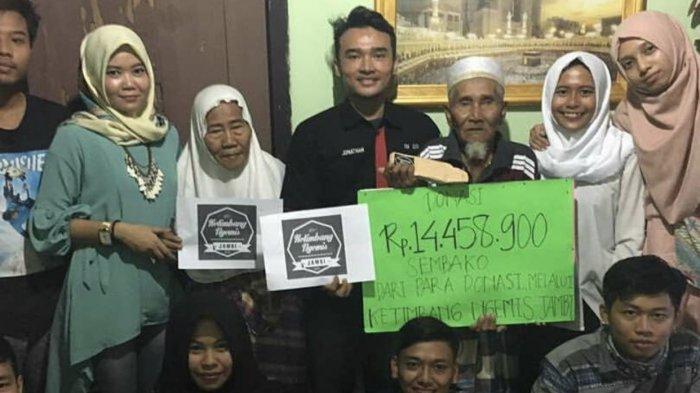 JONATHAN
Ketimbang
Ngemis
JAMBI
Ketimbang
Ngemis
JAMBI
DONASI
Rp. 14.458.900
SEMBAKO
DARI PARA DONASI MELALUI
KETIMBANG NGEMIS JAMBI